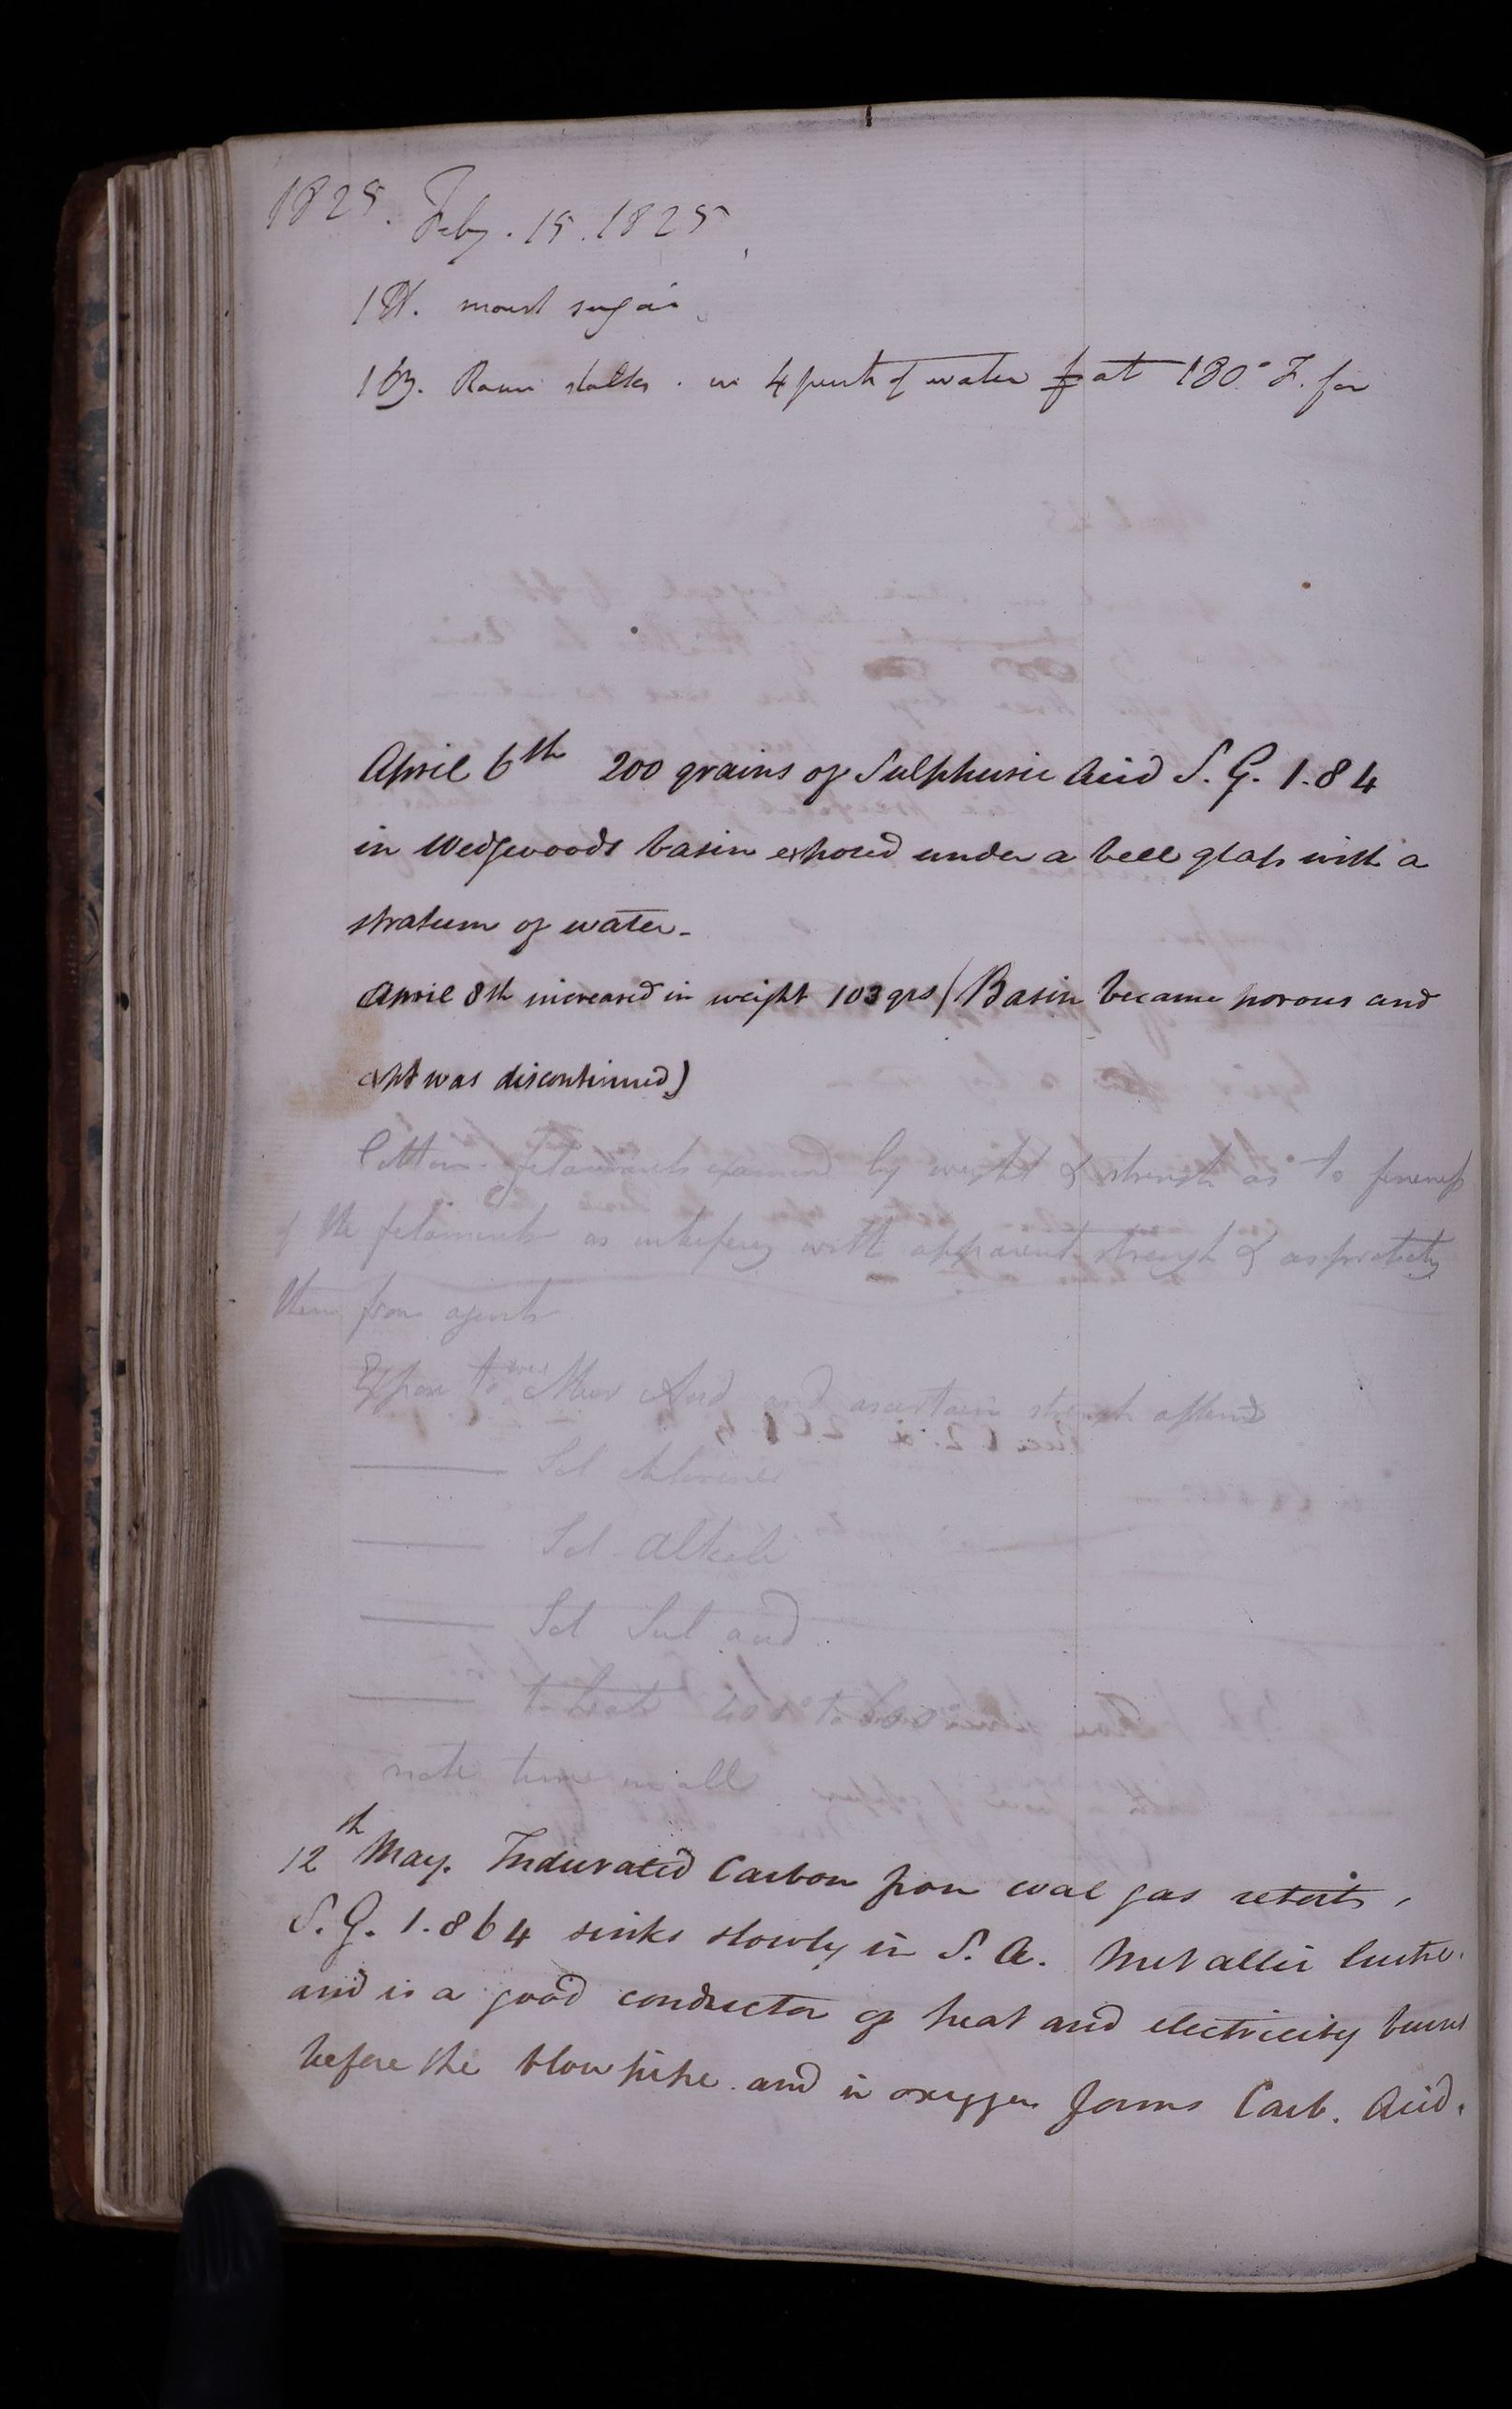 1825. Feby. 15. 1825
1 lb. moist sugar
1 oz. stalks. in 4 pints of water at 180° F. for
April 6th 200 grains of Sulphuric Acid S. G. 1.84
in Wedgwoods basin exposed under a bell glass with a
stratum of water.
April 8th increased in weight 103 grs (Basin became porous and
expt was discontinued)
Cotton. filaments examined by weight & strength as to fineness
of the filaments as interfering with apparent strength & as protecting
them from agents
Expose to Mur Acid and ascertain strength afterwds
——— Sol chlorine
——— Sol Alkali
——— Sol Sul acid
——— to heat 200° to 600°
note time in all
12th May. Indurated Carbon from coal gas retorts,
S. G. 1.864 sinks slowly in S. A. Metallic lustre.
and is a good conductor of heat and electricity burns
before the blow pipe. and in oxygen forms Carb. Acid.